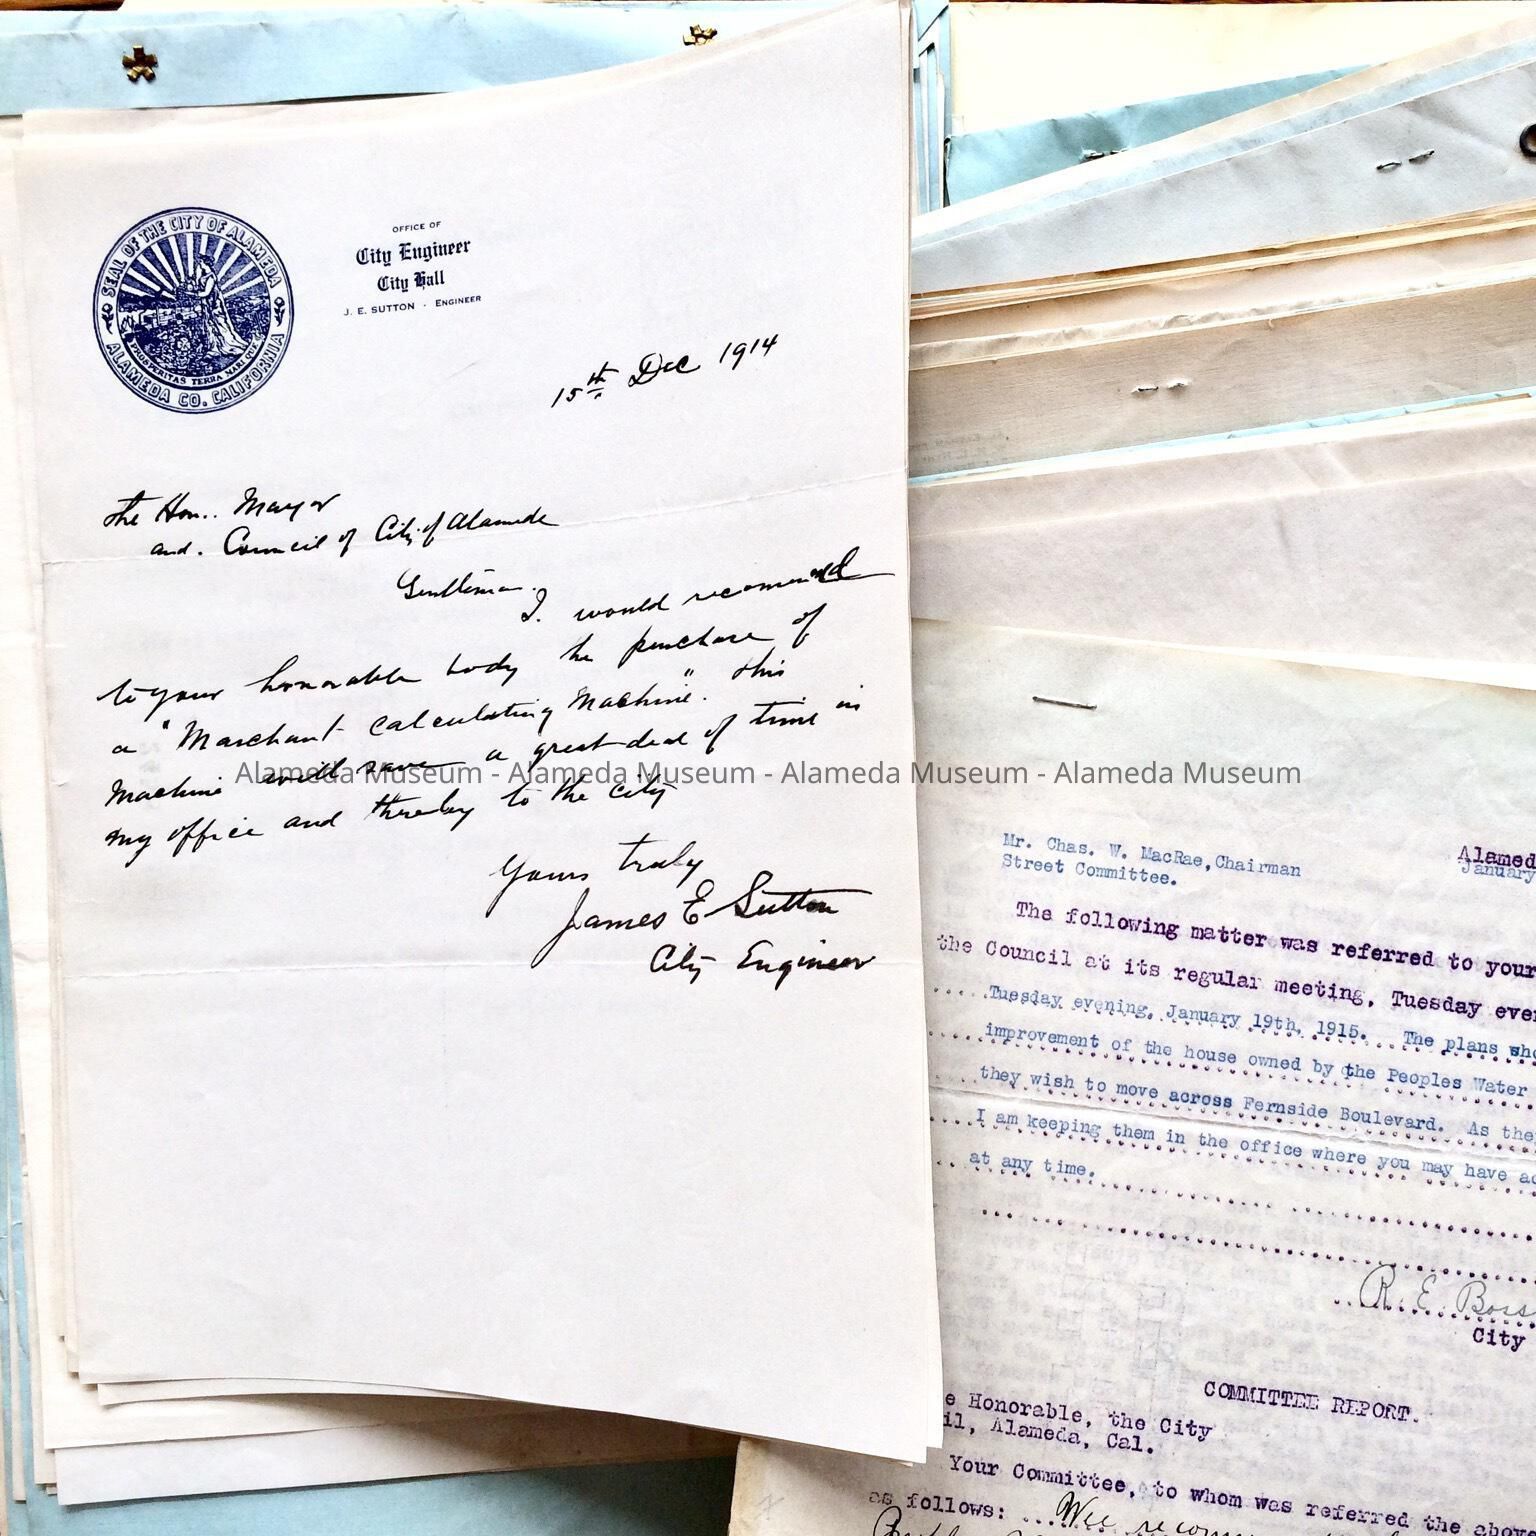 SEAL OF THE CITY OF ALAMEDA
PROSPERITAS TERRA MARIQUE
ALAMEDA CO. CALIFORNIA
OFFICE OF
City Engineer
City Hall
J. E. SUTTON - ENGINEER
15th Dec 1914
The Hon.. Mayor
and. Council of City of Alameda
Gentlemen.
I would recommend
to your honorable body the purchase of
a "Marchant calculating Machine". This
Machine will save a great deal of time in
my office and thereby to the city
Yours truly
James E Sutton
City Engineer
Alameda Museum - Alameda Museum - Alameda Museum - Alameda Museum
Mr. Chas. W. MacRae, Chairman
Street Committee.
Alamed
January
The following matter was referred to your
the Council at its regular meeting, Tuesday even
Tuesday evening, January 19th, 1915. The plans sho
improvement of the house owned by the Peoples Water
they wish to move across Fernside Boulevard. As they
I am keeping them in the office where you may have ac
at any time.
R. E. Boss
City
COMMITTEE REPORT.
e Honorable, the City
il, Alameda, Cal.
Your Committee, to whom was referred the above
as follows: Wee recom